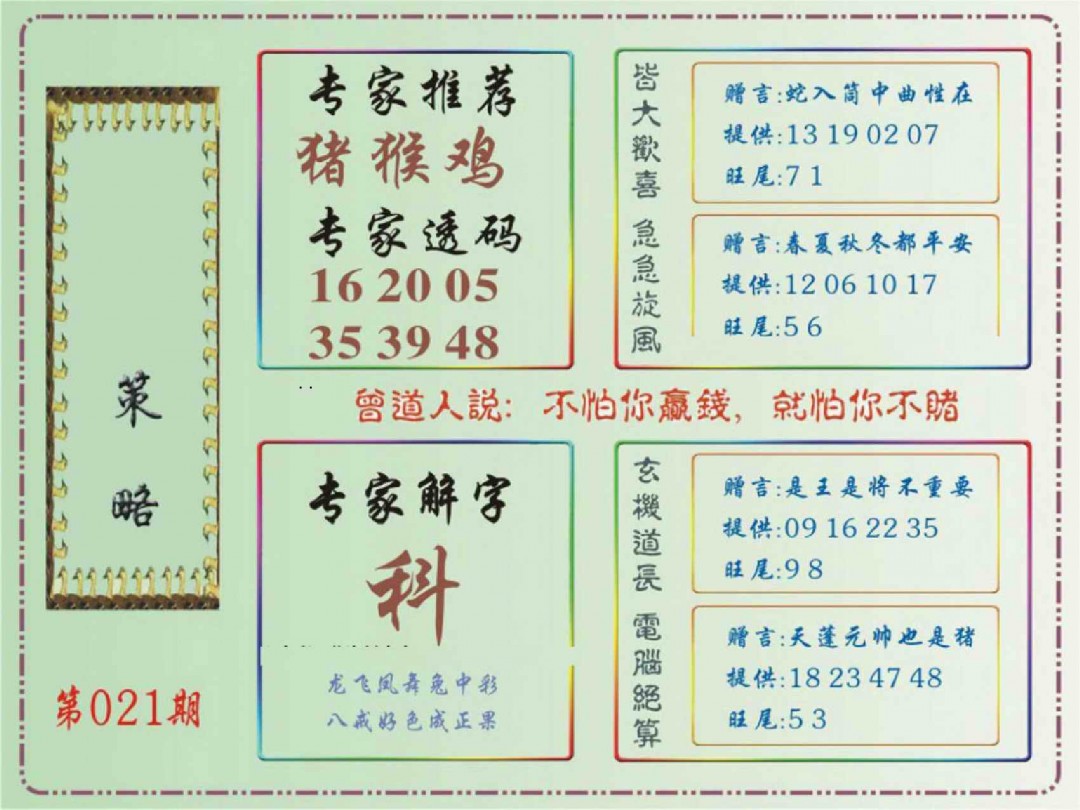 策略
第021期
专家推荐
猪猴鸡
专家透码
16 20 05
35 39 48
皆大歡喜
赠言:蛇入筒中曲性在
提供:13 19 02 07
旺尾:7 1
急急旋風
赠言:春夏秋冬都平安
提供:12 06 10 17
旺尾:5 6
曾道人説: 不怕你贏錢, 就怕你不賭
专家解字
科
龙飞凤舞兔中彩
八戒好色成正果
玄機道長
赠言:是王是将不重要
提供:09 16 22 35
旺尾:9 8
電腦絕算
赠言:天蓬元帅也是猪
提供:18 23 47 48
旺尾:5 3